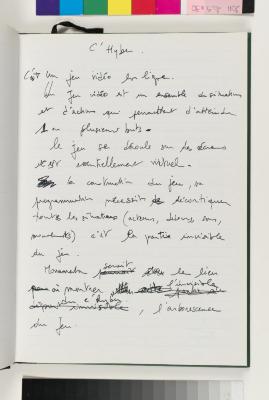 C'Hyber.
C'est Un jeu vidéo en ligne.
Un Jeu vidéo est un ensemble de situations
et d'actions qui permettent d'atteindre
1 ou plusieurs buts.
le jeu se déroule sur des écrans
il est essentiellement virtuel.
la construction du jeu, sa
programmation nécessite de décortiquer
toutes les situations (acteurs, décors, sons,
mouvements) c'est la partie invisible
du jeu.
serait le lieu
où montrer l'invisible
du c'Hyber, l'arborescence
du Jeu.